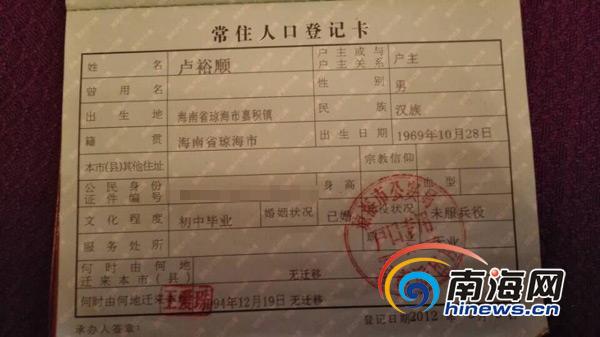 常住人口登记卡
姓名 卢裕顺 户主或与户主关系 户主
曾用名 性别 男
出生地 海南省琼海市嘉积镇 民族 汉族
籍贯 海南省琼海市 出生日期 1969年10月28日
本市(县)其他住址 宗教信仰
公民身份证件编号 身高 血型
文化程度 初中毕业 婚姻状况 已婚 兵役状况 未服兵役
服务处所
何时由何地迁来本市(县) 无迁移
何时由何地迁来本址 1994年12月19日 无迁移
承办人签章: 登记日期:2012年
户口专用
南海网
hinews.cn